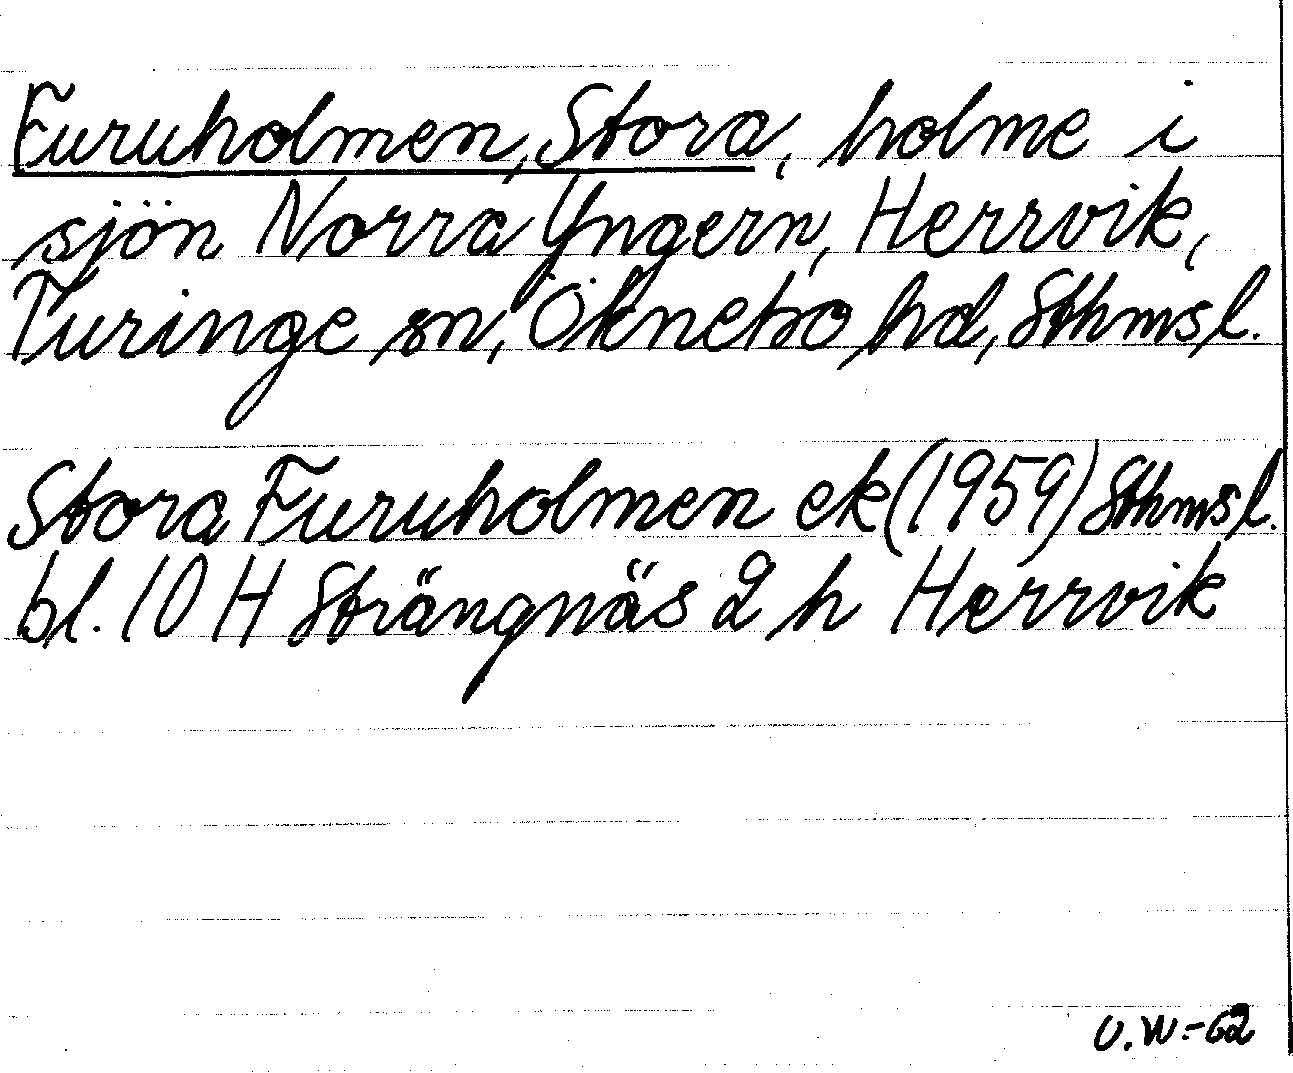 Furuholmen, Stora, holme i
sjön Norra Yngern, Herrvik,
Turinge sn, Öknebo hd, Sthmsl.
Stora Furuholmen ek (1959) Sthmsl.
bl. 10 H Strängnäs 2 h Herrvik
U.W.-62